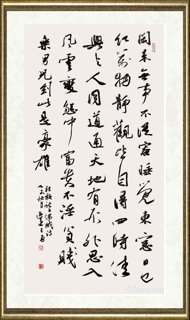 閑来無事不從容睡覺東窗日已
紅萬物靜觀皆自得四時佳
興与人同道通天地有形外思入
風雲變態中富貴不淫貧賤
樂男兒到此是豪雄